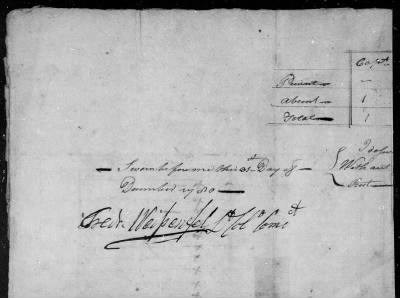 Capt
Present —
Absent — 1
Total — 1
— Sworn before me this 31st Day of —
December 1780 —
With out
Fredk. Weisenfels Lt Col Comt